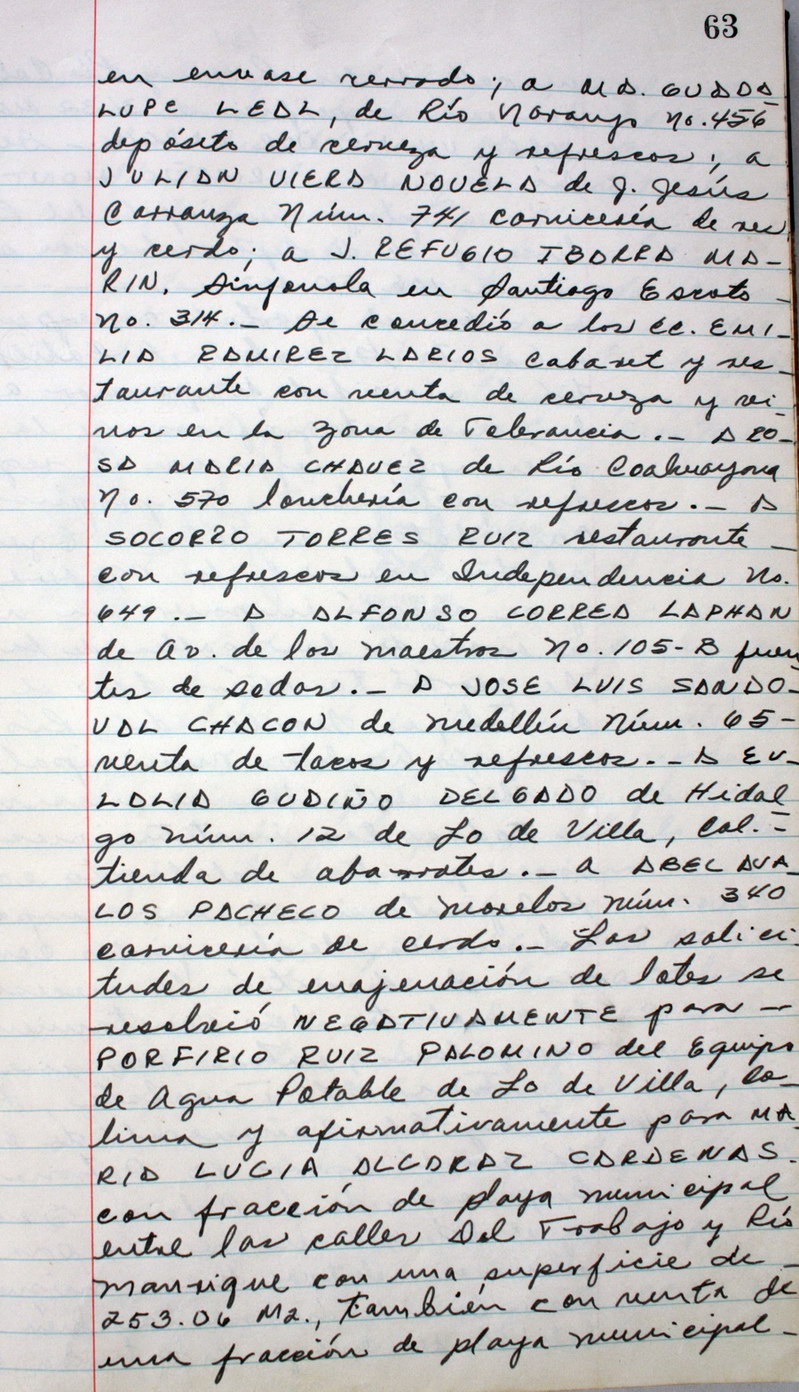 63
en envase cerrado; a MA. GUADA
LUPE LEAL, de Río Naranjo No. 456
depósito de cerveza y refrescos; a
JULIAN VIERA NOVELA de J. Jesús
Carranza Núm. 741 carnicería de res
y cerdo; a J. REFUGIO IBARRA MA-
RIN. Sinfonola en Santiago Escoto -
No. 314.- Se concedió a los CC. EMI-
LIA RAMIREZ LARIOS Cabaret y res-
taurante con venta de cerveza y vi-
nos en la Zona de Tolerancia.- A RO-
SA MARIA CHAVEZ de Río Coahuayana
No. 570 lonchería con refrescos.- A
SOCORRO TORRES RUIZ restaurante -
con refrescos en Independencia No.
649.- A ALFONSO CORREA LAPHAN
de Av. de los Maestros No. 105-B fuen
tes de sodas.- A JOSE LUIS SANDO-
VAL CHACON de Medellín Núm. 65-
venta de tacos y refrescos.- A EU-
LALIA GUDIÑO DELGADO de Hidal
go Núm. 12 de Lo de Villa, Col.-
tienda de abarrotes.- a ABEL AVA-
LOS PACHECO de Morelos Núm. 340
carnicería de cerdo.- Las solici-
tudes de enajenación de lotes se
resolvió NEGATIVAMENTE para -
PORFIRIO RUIZ PALOMINO del Equipo
de Agua Potable de Lo de Villa, Co-
lima y afirmativamente para MA-
RIA LUCIA ALCARAZ CARDENAS.
con fracción de playa municipal
entre las calles Del Trabajo y Río
Manrique con una superficie de -
253.06 M2., también con venta de
una fracción de playa municipal -